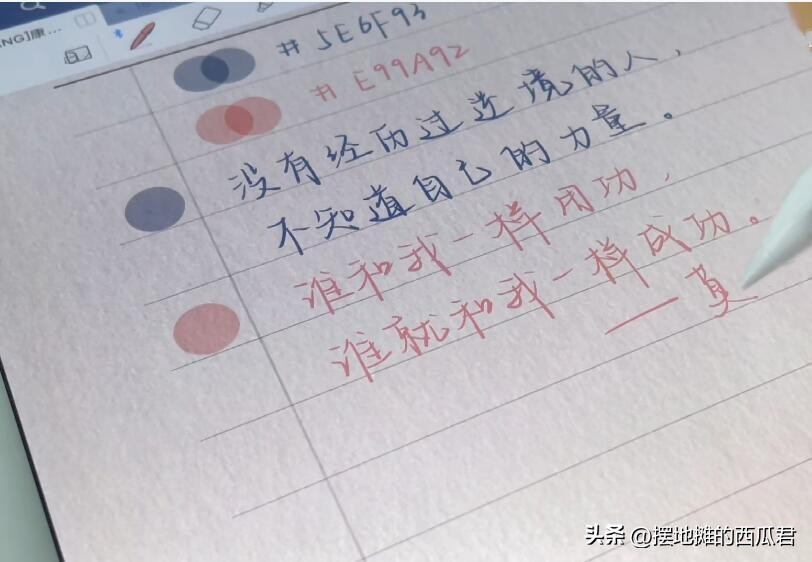 NG]康...
#5E6F93
#E99A92
没有经历过逆境的人,
不知道自己的力量。
谁和我一样用功,
谁就和我一样成功。
——莫
头条 @摆地摊的西瓜君